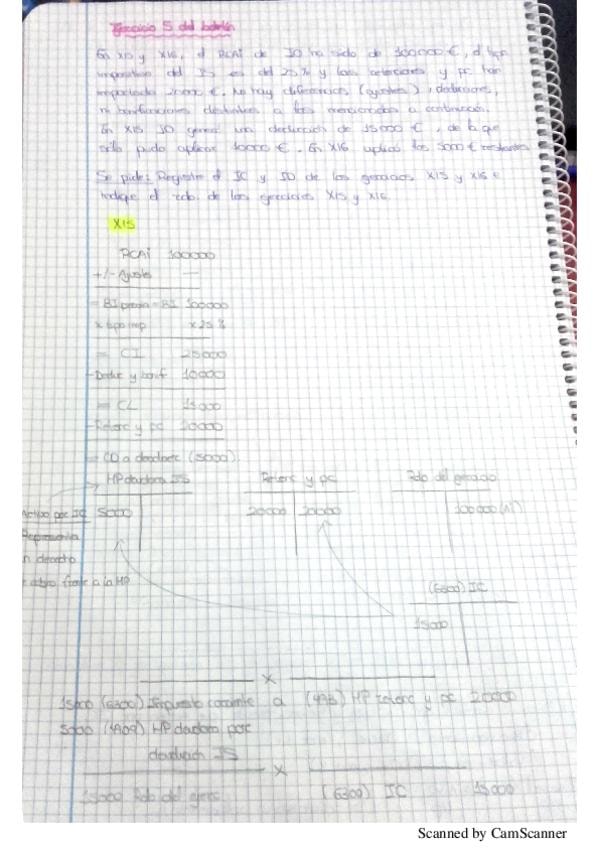 Ejercicio 5 del boletín
En X15 y X16, el RCAI de JO ha sido de 100000 €, el tipo
impositivo del IS es del 25% y las retenciones y pc han
importado 20000 €. No hay diferencias (ajustes), deducciones,
ni bonificaciones distintas a las mencionadas a continuación.
En X15 JO generó una deducción de 15000 €, de la que
sólo pudo aplicar 10000 €. En X16 aplicó los 5000 € restantes.
Se pide: Registre el IC y ID de los ejercicios X15 y X16 e
indique el rdo. de los ejercicios X15 y X16.
X15
RCAI 100000
+/- Ajustes —
= BI previa = BI 100000
x tipo imp x 25 %
= CI 25000
- Deduc y bonif 10000
= CL 15000
- Retenc y pc 20000
= CD a devolver (5000)
HP deudora IS Retenc y pc Rdo del ejercicio
Activo por IC 5000 20000 20000 100000 (AI)
Representa
un derecho
cobro frente a la HP
(6300) IC
15000
x
15000 (6300) Impuesto corriente a (473) HP retenc y pc 20000
5000 (4709) HP deudora por
devolución IS
x
15000 Rdo del ejerc (6300) IC 15000
Scanned by CamScanner